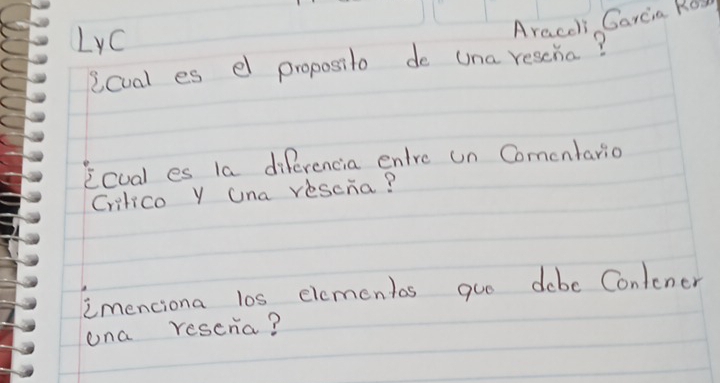 LyC
Araceli Garcia
¿cual es el proposito de una reseña?
¿cual es la diferencia entre un Comentario
Critico y una reseña?
¿menciona los elementos que debe Contener
una reseña?